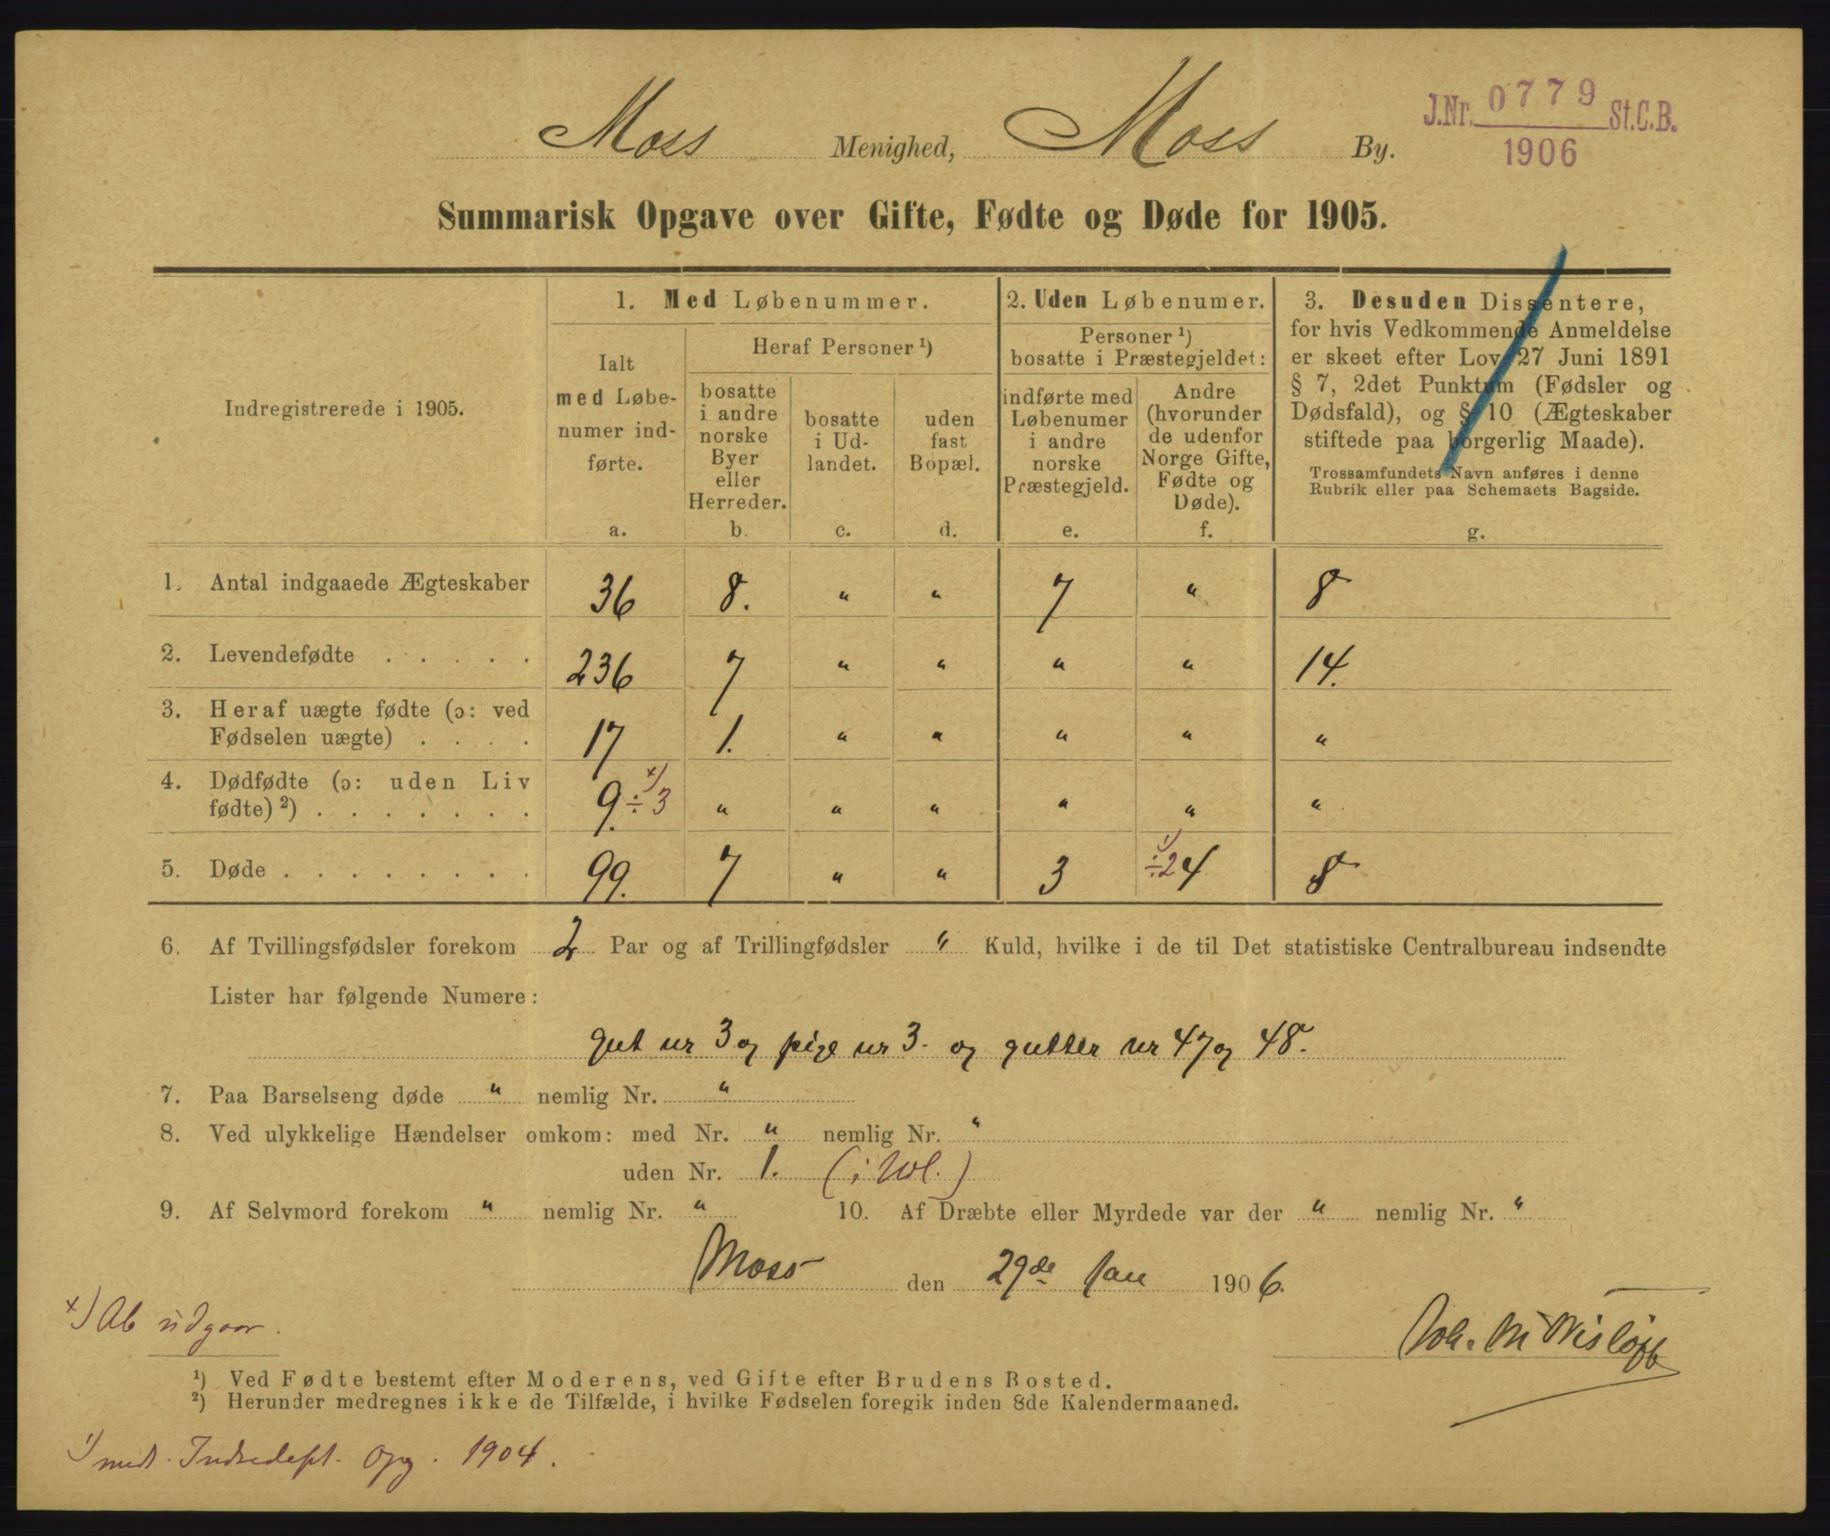 Moss Menighed, Moss By.
J.Nr. 0779 St.C.B.
1906
Summarisk Opgave over Gifte, Fødte og Døde for 1905.
Indregistrerede i 1905.
1. Med Løbenummer.
Ialt
med Løbe-
numer ind-
førte.
a.
Heraf Personer ¹)
bosatte
i andre
norske
Byer
eller
Herreder.
b.
bosatte
i Ud-
landet.
c.
uden
fast
Bopæl.
d.
2. Uden Løbenumer.
Personer ¹)
bosatte i Præstegjeldet:
indførte med
Løbenumer
i andre
norske
Præstegjeld.
e.
Andre
(hvorunder
de udenfor
Norge Gifte,
Fødte og
Døde).
f.
3. Desuden Dissentere,
for hvis Vedkommende Anmeldelse
er skeet efter Lov 27 Juni 1891
§ 7, 2det Punktum (Fødsler og
Dødsfald), og § 10 (Ægteskaber
stiftede paa borgerlig Maade).
Trossamfundets Navn anføres i denne
Rubrik eller paa Schemaets Bagside.
g.
1. Antal indgaaede Ægteskaber 36 8. " " 7 " 8
2. Levendefødte . . . . . 236 7 " " " " 14.
3. Heraf uægte fødte (ɔ: ved
Fødselen uægte) . . . . 17 1. " " " " "
4. Dødfødte (ɔ: uden Liv
fødte) ²) . . . . . . . 9. ÷ 3 x) " " " " " "
5. Døde . . . . . . . . 99. 7 " " 3 ÷2 ¹) 4 8
6. Af Tvillingsfødsler forekom 2 Par og af Trillingfødsler " Kuld, hvilke i de til Det statistiske Centralbureau indsendte
Lister har følgende Numere:
gut nr 3 og pige nr 3. og gutter nr 47 og 48.
7. Paa Barselseng døde " nemlig Nr. "
8. Ved ulykkelige Hændelser omkom: med Nr. " nemlig Nr. "
uden Nr. 1. (i Udl.)
9. Af Selvmord forekom " nemlig Nr. " 10. Af Dræbte eller Myrdede var der " nemlig Nr. "
Moss den 29de Jan 1906.
x) Ab udgaar.
Joh. M Wisløff
¹) Ved Fødte bestemt efter Moderens, ved Gifte efter Brudens Bosted.
²) Herunder medregnes ikke de Tilfælde, i hvilke Fødselen foregik inden 8de Kalendermaaned.
¹) medt. Opg. 1904.